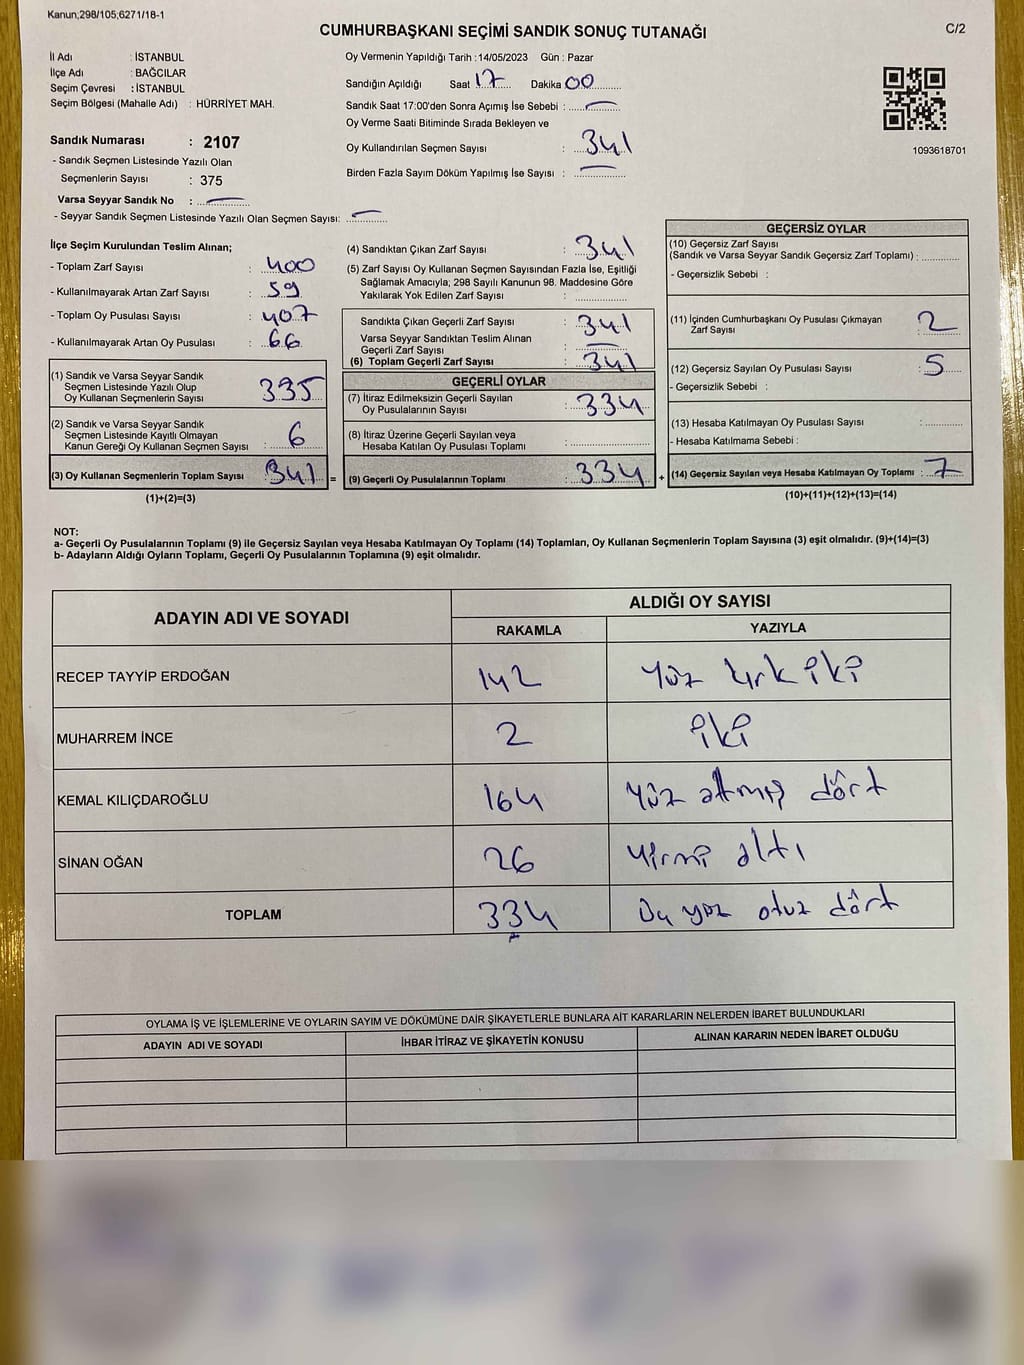 Kanun,298/105,6271/18-1
CUMHURBAŞKANI SEÇİMİ SANDIK SONUÇ TUTANAĞI
C/2
İl Adı : İSTANBUL
İlçe Adı : BAĞCILAR
Seçim Çevresi : İSTANBUL
Seçim Bölgesi (Mahalle Adı) : HÜRRİYET MAH.
Sandık Numarası : 2107
- Sandık Seçmen Listesinde Yazılı Olan
Seçmenlerin Sayısı : 375
Varsa Seyyar Sandık No :
- Seyyar Sandık Seçmen Listesinde Yazılı Olan Seçmen Sayısı:
Oy Vermenin Yapıldığı Tarih : 14/05/2023 Gün : Pazar
Sandığın Açıldığı Saat 17 Dakika 00
Sandık Saat 17:00'den Sonra Açımış İse Sebebi :
Oy Verme Saati Bitiminde Sırada Bekleyen ve
Oy Kullandırılan Seçmen Sayısı : 341
Birden Fazla Sayım Döküm Yapılmış İse Sayısı :
1093618701
İlçe Seçim Kurulundan Teslim Alınan;
- Toplam Zarf Sayısı : 400
- Kullanılmayarak Artan Zarf Sayısı : 59
- Toplam Oy Pusulası Sayısı : 407
- Kullanılmayarak Artan Oy Pusulası : 66
(1) Sandık ve Varsa Seyyar Sandık
Seçmen Listesinde Yazılı Olup
Oy Kullanan Seçmenlerin Sayısı 335
(2) Sandık ve Varsa Seyyar Sandık
Seçmen Listesinde Kayıtlı Olmayan
Kanun Gereği Oy Kullanan Seçmen Sayısı 6
(3) Oy Kullanan Seçmenlerin Toplam Sayısı 341 =
(1)+(2)=(3)
(4) Sandıktan Çıkan Zarf Sayısı : 341
(5) Zarf Sayısı Oy Kullanan Seçmen Sayısından Fazla İse, Eşitliği
Sağlamak Amacıyla; 298 Sayılı Kanunun 98. Maddesine Göre
Yakılarak Yok Edilen Zarf Sayısı :
Sandıkta Çıkan Geçerli Zarf Sayısı : 341
Varsa Seyyar Sandıktan Teslim Alınan
Geçerli Zarf Sayısı :
(6) Toplam Geçerli Zarf Sayısı : 341
GEÇERLİ OYLAR
(7) İtiraz Edilmeksizin Geçerli Sayılan
Oy Pusulalarının Sayısı : 334
(8) İtiraz Üzerine Geçerli Sayılan veya
Hesaba Katılan Oy Pusulası Toplamı :
(9) Geçerli Oy Pusulalarının Toplamı : 334 +
GEÇERSİZ OYLAR
(10) Geçersiz Zarf Sayısı
(Sandık ve Varsa Seyyar Sandık Geçersiz Zarf Toplamı) :
- Geçersizlik Sebebi :
(11) İçinden Cumhurbaşkanı Oy Pusulası Çıkmayan
Zarf Sayısı 2
(12) Geçersiz Sayılan Oy Pusulası Sayısı : 5
- Geçersizlik Sebebi :
(13) Hesaba Katılmayan Oy Pusulası Sayısı :
- Hesaba Katılmama Sebebi :
(14) Geçersiz Sayılan veya Hesaba Katılmayan Oy Toplamı : 7
(10)+(11)+(12)+(13)=(14)
NOT:
a- Geçerli Oy Pusulalarının Toplamı (9) ile Geçersiz Sayılan veya Hesaba Katılmayan Oy Toplamı (14) Toplamları, Oy Kullanan Seçmenlerin Toplam Sayısına (3) eşit olmalıdır. (9)+(14)=(3)
b- Adayların Aldığı Oyların Toplamı, Geçerli Oy Pusulalarının Toplamına (9) eşit olmalıdır.
ADAYIN ADI VE SOYADI
ALDIĞI OY SAYISI
RAKAMLA YAZIYLA
RECEP TAYYİP ERDOĞAN 142 Yüz kırk iki
MUHARREM İNCE 2 iki
KEMAL KILIÇDAROĞLU 164 Yüz atmış dört
SİNAN OĞAN 26 Yirmi altı
TOPLAM 334 Üç yüz otuz dört
OYLAMA İŞ VE İŞLEMLERİNE VE OYLARIN SAYIM VE DÖKÜMÜNE DAİR ŞİKAYETLERLE BUNLARA AİT KARARLARIN NELERDEN İBARET BULUNDUKLARI
ADAYIN ADI VE SOYADI İHBAR İTİRAZ VE ŞİKAYETİN KONUSU ALINAN KARARIN NEDEN İBARET OLDUĞU